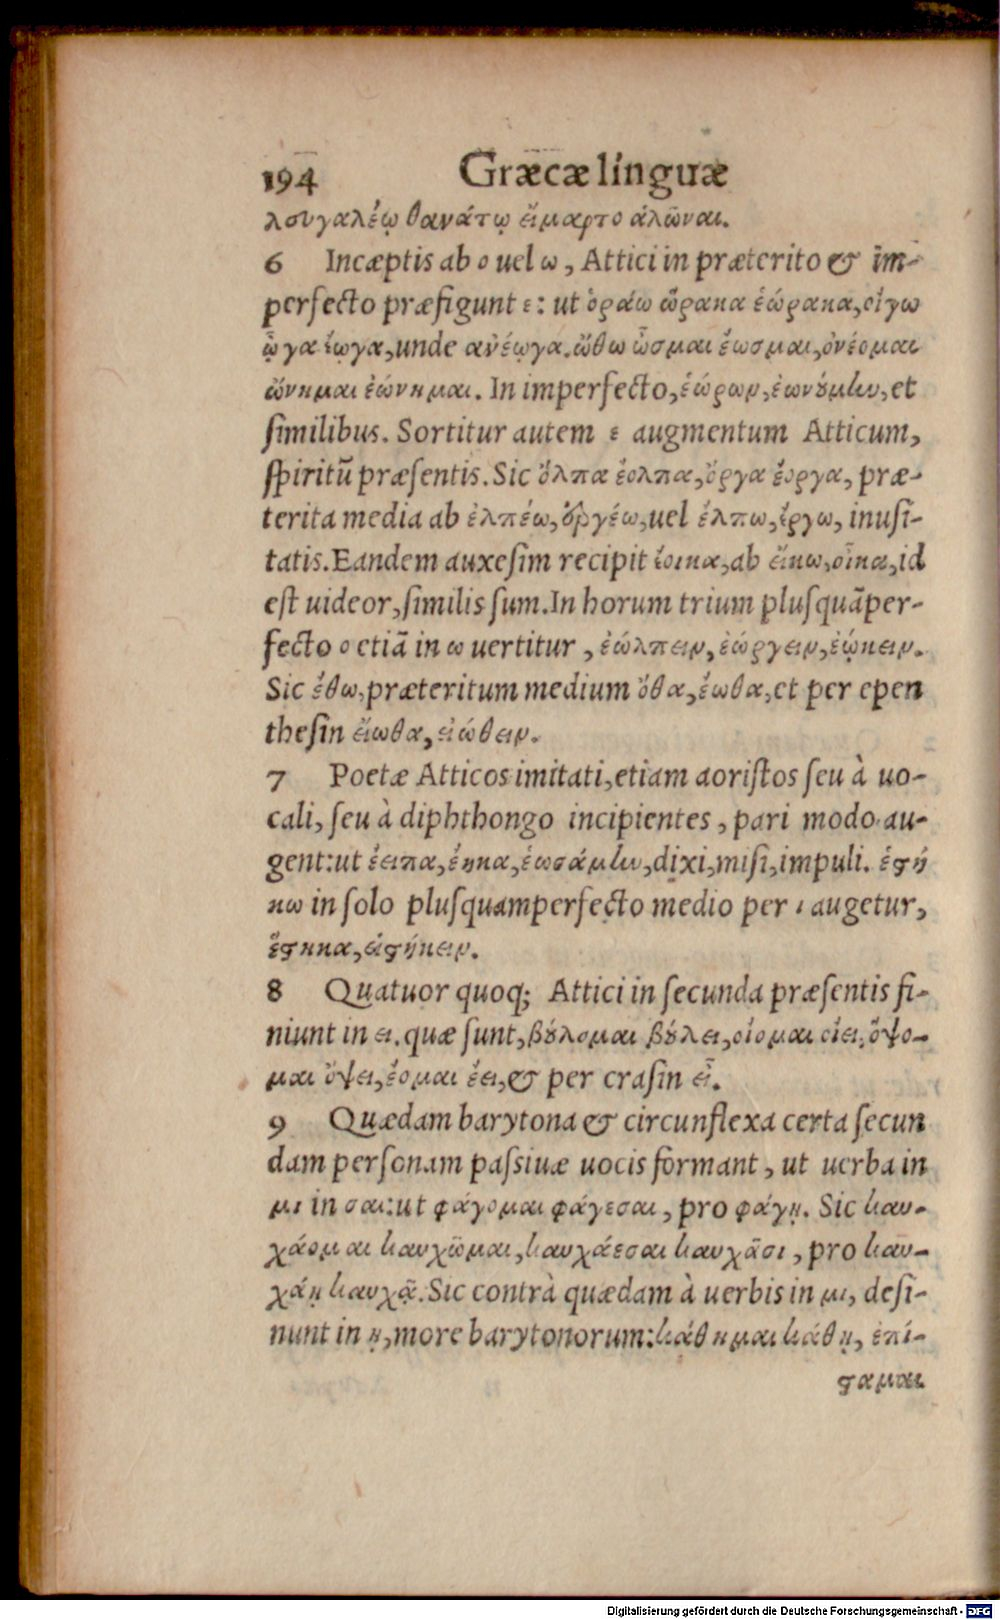 194 Græcæ linguæ
λουγαλέῳ θανάτῳ εἵμαρτο ἁλῶναι.
6 Incæptis ab ο uel ω, Attici in præterito & im-
perfecto præfigunt ε: ut ὁράω ὥρακα ἑώρακα, οἴγω
ᾦγα ἔῳγα, unde ἀνέῳγα. ὤθω ὦσμαι ἔωσμαι, ὀνέομαι
ὤνημαι ἐώνημαι. In imperfecto, ἑώρων, ἐωνούμην, et
similibus. Sortitur autem ε augmentum Atticum,
spiritū præsentis. Sic ὄλπα ἔολπα, ὄργα ἔοργα, præ-
terita media ab ἐλπέω, ἐργέω, uel ἔλπω, ἔργω, inusi-
tatis. Eandem auxesim recipit ἔοικα, ab εἴκω, οἶκα, id
est uideor, similis sum. In horum trium plusquāper-
fecto ο etiā in ω uertitur, ἐώλπειν, ἐώργειν, ἐῴκειν.
Sic ἔθω, præteritum medium ὄθα, ἔωθα, et per epen
thesin εἴωθα, εἰώθειν.
7 Poetæ Atticos imitati, etiam aoristos seu à uo-
cali, seu à diphthongo incipientes, pari modo au-
gent: ut ἔειπα, ἕηκα, ἐωσάμην, dixi, misi, impuli. ἑστή
κω in solo plusquamperfecto medio per ι augetur,
ἕστηκα, εἱστήκειν.
8 Quatuor quoq; Attici in secunda præsentis fi-
niunt in ει. quæ sunt, βούλομαι βούλει, οἴομαι οἴει, ὄψο-
μαι ὄψει, ἔομαι ἔει, & per crasin εἶ.
9 Quædam barytona & circunflexa certa secun
dam personam passiuæ uocis formant, ut uerba in
μι in σαι: ut φάγομαι φάγεσαι, pro φάγῃ. Sic καυ-
χάομαι καυχῶμαι, καυχάεσαι καυχᾶσι, pro καυ-
χάῃ καυχᾷ. Sic contrà quædam à uerbis in μι, desi-
nunt in ῃ, more barytonorum: κάθημαι κάθῃ, ἐπί-
σταμαι
Digitalisierung gefördert durch die Deutsche Forschungsgemeinschaft - DFG